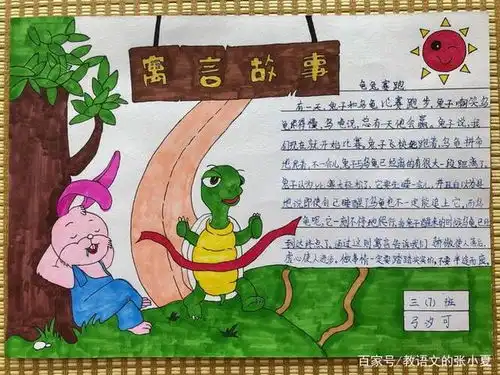 寓言故事
龟兔赛跑
有一天,兔子和乌龟比赛跑步,兔子嘲笑乌
龟爬得慢,乌龟说,总有天他会赢。兔子说,我
们现在就开始比赛。兔子飞快地跑着,乌龟拼命
地爬着,不一会儿兔子与乌龟已经离的有很大一段距离了。
兔子认为比赛太轻松了,它要先睡一会儿,并且自以为是
地说即使自己睡醒了乌龟也不一定能追上它。而乌
龟呢,它一刻不停地爬行,当兔子醒来的时候乌龟已
到达终点了。通过这则寓言告诉我们:骄傲使人落后,
虚心使人进步,做事情一定要踏踏实实的,不要半途而废。
三(7)班
百家号/教语文的张小夏